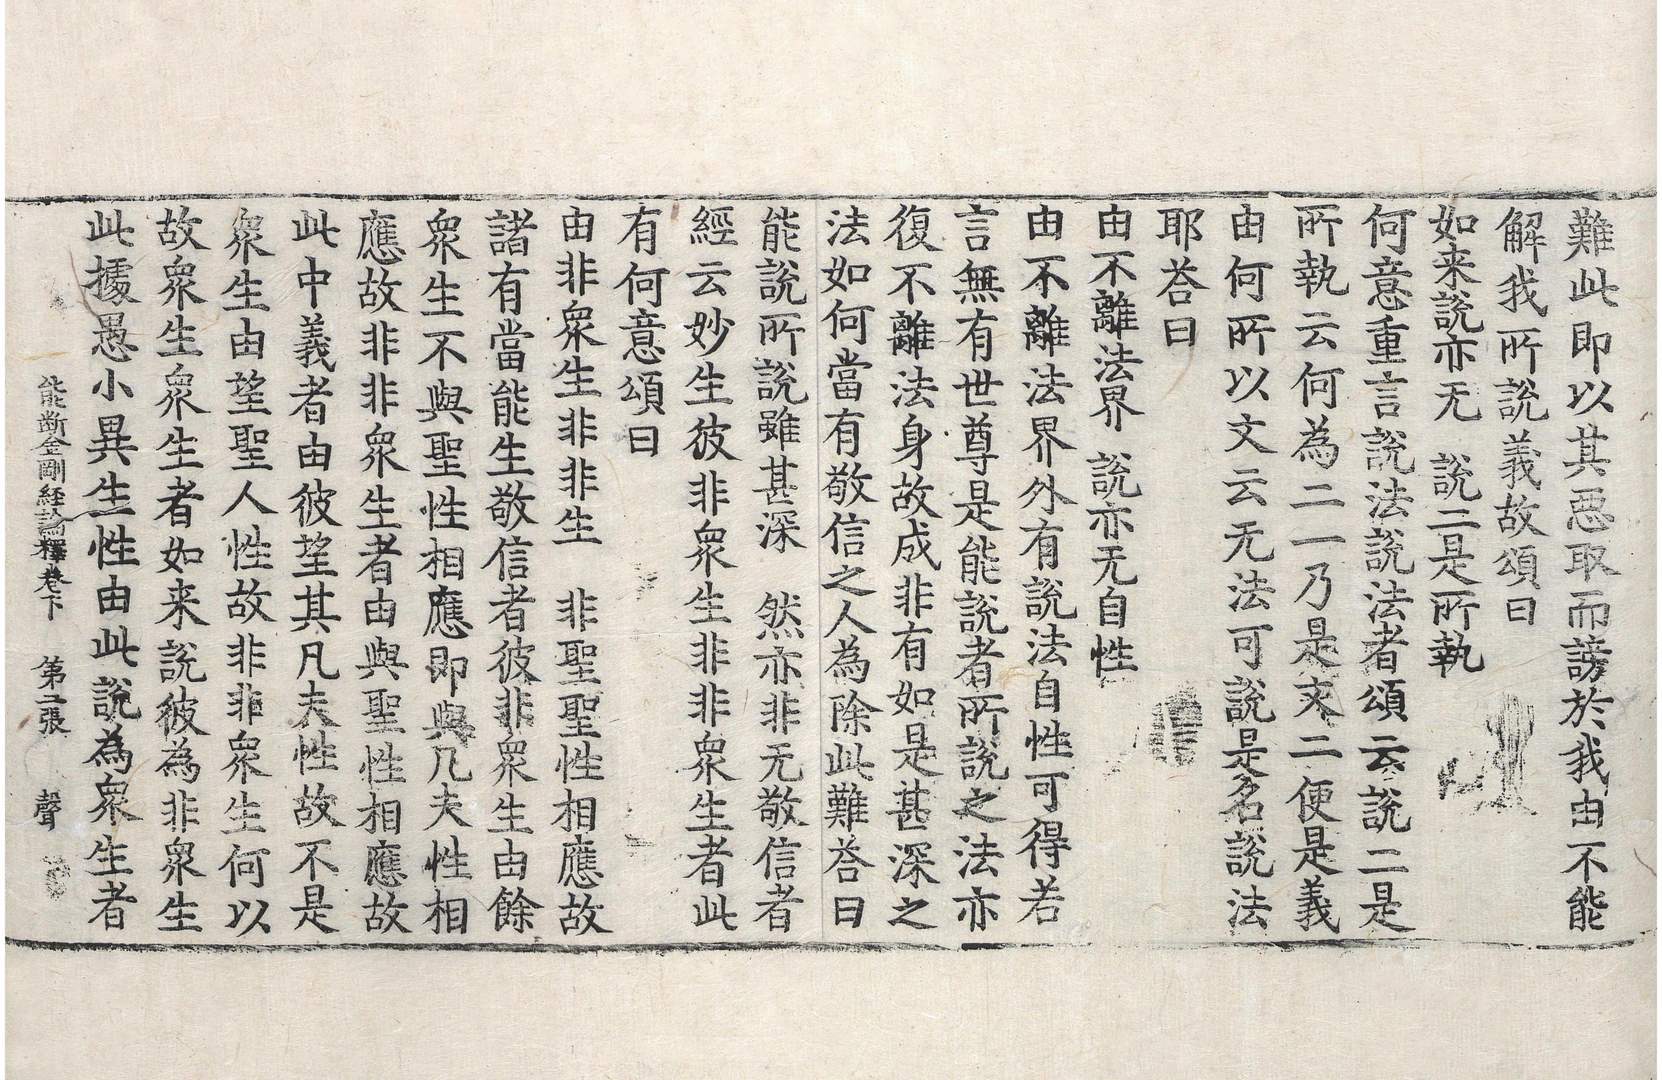 難此即以其惡取而謗於我由不能
解我所說義故頌曰
如来說亦无　說二是所執
何意重言說法說法者頌云說二是
所執云何為二一乃是文二便是義
由何所以文云无法可說是名說法
耶荅曰
由不離法界　說亦无自性
由不離法界外有說法自性可得若
言無有世尊是能說者所說之法亦
復不離法身故成非有如是甚深之
法如何當有敬信之人為除此難荅曰
能說所說雖甚深　然亦非无敬信者
經云妙生彼非衆生非非衆生者此
有何意頌曰
由非衆生非非生　非聖聖性相應故
諸有當能生敬信者彼非衆生由餘
衆生不與聖性相應即與凡夫性相
應故非非衆生者由與聖性相應故
此中義者由彼望其凡夫性故不是
衆生由望聖人性故非非衆生何以
故衆生衆生者如来說彼為非衆生
此據愚小異生性由此說為衆生者
能斷金剛經論釋卷下　第二張　聲